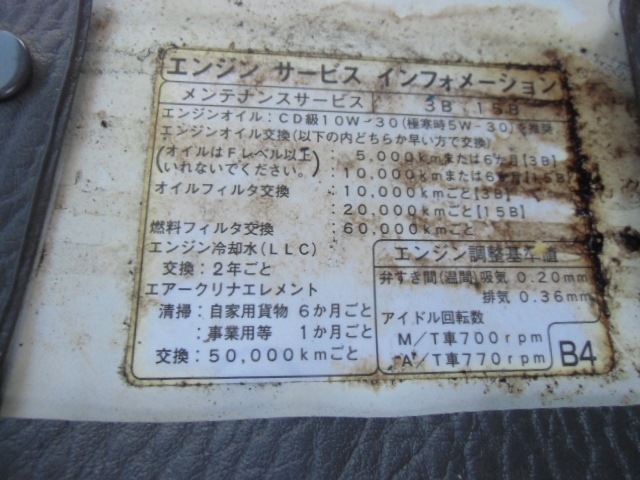 エンジン サービス インフォメーション
メンテナンスサービス 3B 15B
エンジンオイル：CD級10W-30(極寒時5W-30)を推奨
エンジンオイル交換(以下の内どちらか早い方で交換)
(オイルはFレベル以上 : 5,000kmまたは6か月[3B]
いれないでください。) : 10,000kmまたは6か月[15B]
オイルフィルタ交換 : 10,000kmごと[3B]
: 20,000kmごと[15B]
燃料フィルタ交換 : 60,000kmごと
エンジン冷却水(LLC)
交換：2年ごと
エアークリナエレメント
清掃：自家用貨物 6か月ごと
：事業用等 1か月ごと
交換：50,000kmごと
エンジン調整基準値
弁すき間(温間)吸気 0.20mm
排気 0.36mm
アイドル回転数
M/T車700rpm
A/T車770rpm
B4